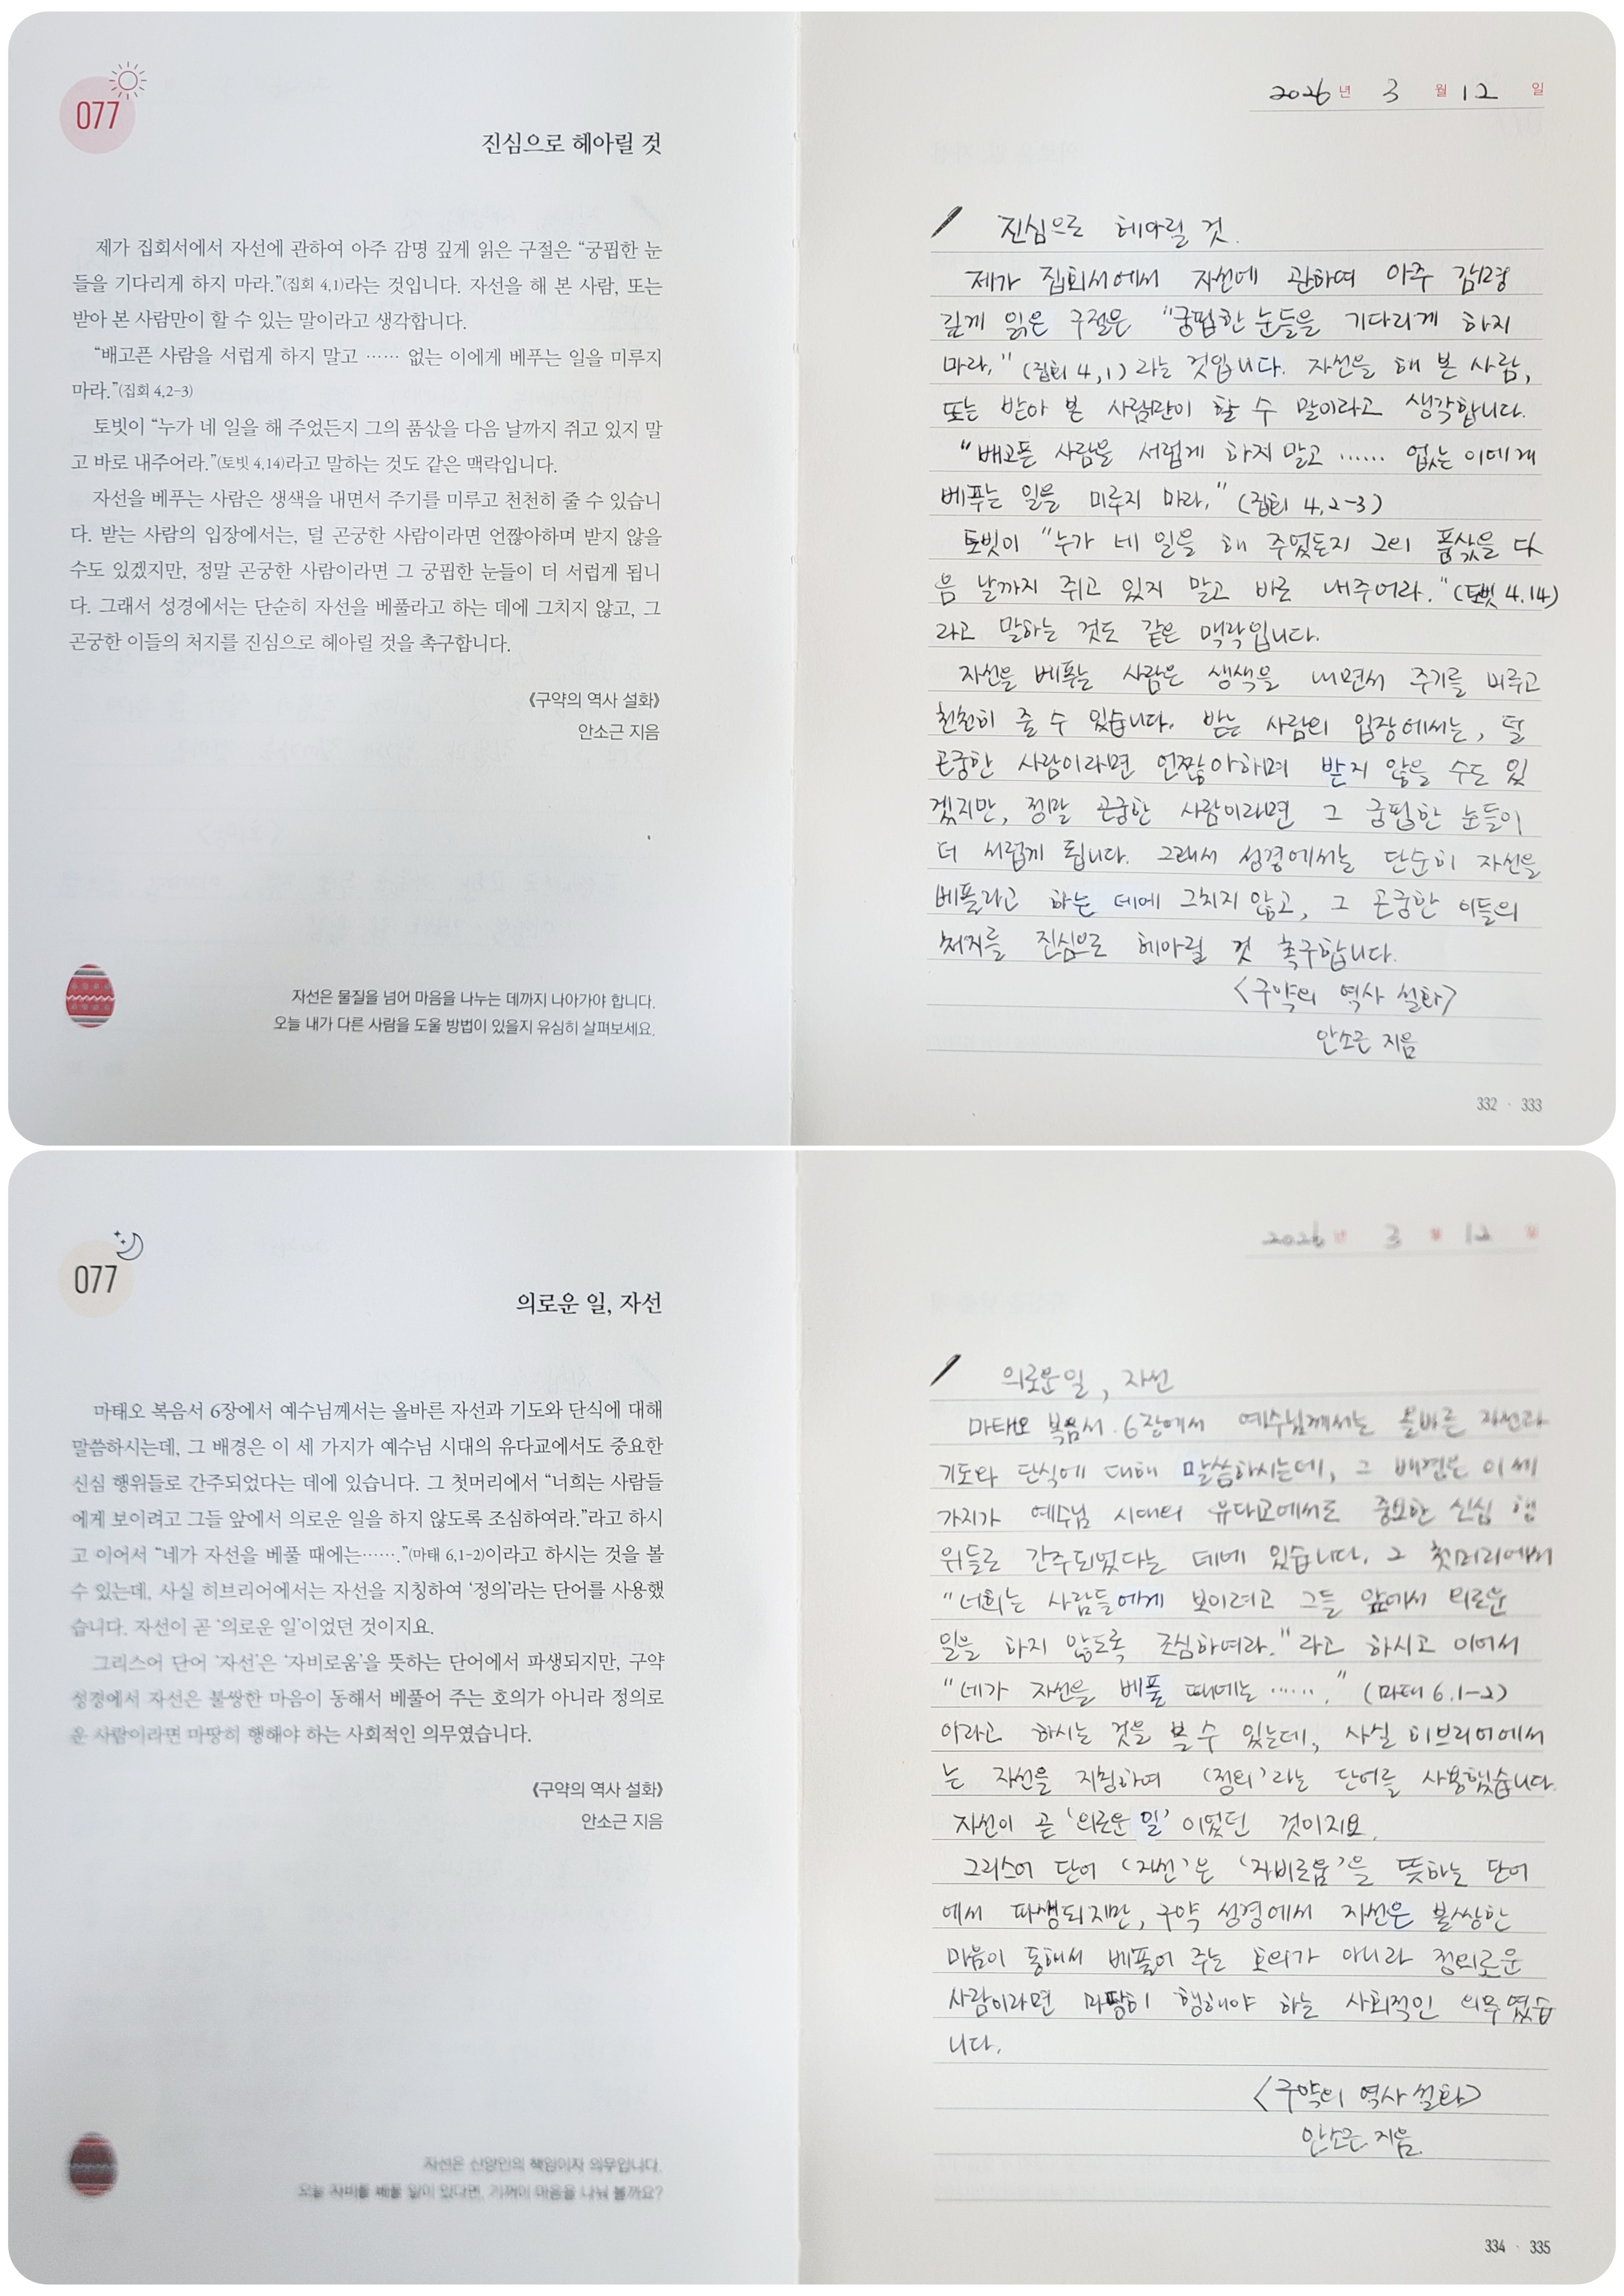 077
진심으로 헤아릴 것
제가 집회서에서 자선에 관하여 아주 감명 깊게 읽은 구절은 “궁핍한 눈
들을 기다리게 하지 마라.”(집회 4,1)라는 것입니다. 자선을 해 본 사람, 또는
받아 본 사람만이 할 수 있는 말이라고 생각합니다.
“배고픈 사람을 서럽게 하지 말고 …… 없는 이에게 베푸는 일을 미루지
마라.”(집회 4,2-3)
토빗이 “누가 네 일을 해 주었든지 그의 품삯을 다음 날까지 쥐고 있지 말
고 바로 내주어라.”(토빗 4,14)라고 말하는 것도 같은 맥락입니다.
자선을 베푸는 사람은 생색을 내면서 주기를 미루고 천천히 줄 수 있습니
다. 받는 사람의 입장에서는, 덜 곤궁한 사람이라면 언짢아하며 받지 않을
수도 있겠지만, 정말 곤궁한 사람이라면 그 궁핍한 눈들이 더 서럽게 됩니
다. 그래서 성경에서는 단순히 자선을 베풀라고 하는 데에 그치지 않고, 그
곤궁한 이들의 처지를 진심으로 헤아릴 것을 촉구합니다.
《구약의 역사 설화》
안소근 지음
자선은 물질을 넘어 마음을 나누는 데까지 나아가야 합니다.
오늘 내가 다른 사람을 도울 방법이 있을지 유심히 살펴보세요.
2026년 3월 12일
진심으로 헤아릴 것.
제가 집회서에서 자선에 관하여 아주 감명
깊게 읽은 구절은 “궁핍한 눈들을 기다리게 하지
마라.” (집회 4,1) 라는 것입니다. 자선을 해 본 사람,
또는 받아 본 사람만이 할 수 말이라고 생각합니다.
“배고픈 사람을 서럽게 하지 말고 …… 없는 이에게
베푸는 일을 미루지 마라.” (집회 4,2-3)
토빗이 “누가 네 일을 해 주었든지 그의 품삯을 다
음 날까지 쥐고 있지 말고 바로 내주어라.” (토빗 4.14)
라고 말하는 것도 같은 맥락입니다.
자선을 베푸는 사람은 생색을 내면서 주기를 미루고
천천히 줄 수 있습니다. 받는 사람의 입장에서는, 덜
곤궁한 사람이라면 언짢아하며 받지 않을 수도 있
겠지만, 정말 곤궁한 사람이라면 그 궁핍한 눈들이
더 서럽게 됩니다. 그래서 성경에서는 단순히 자선을
베풀라고 하는 데에 그치지 않고, 그 곤궁한 이들의
처지를 진심으로 헤아릴 것 촉구합니다.
<구약의 역사 설화>
안소근 지음
332 · 333
077
의로운 일, 자선
마태오 복음서 6장에서 예수님께서는 올바른 자선과 기도와 단식에 대해
말씀하시는데, 그 배경은 이 세 가지가 예수님 시대의 유다교에서도 중요한
신심 행위들로 간주되었다는 데에 있습니다. 그 첫머리에서 “너희는 사람들
에게 보이려고 그들 앞에서 의로운 일을 하지 않도록 조심하여라.”라고 하시
고 이어서 “네가 자선을 베풀 때에는…….”(마태 6,1-2)이라고 하시는 것을 볼
수 있는데, 사실 히브리어에서는 자선을 지칭하여 ‘정의’라는 단어를 사용했
습니다. 자선이 곧 ‘의로운 일’이었던 것이지요.
그리스어 단어 ‘자선’은 ‘자비로움’을 뜻하는 단어에서 파생되지만, 구약
성경에서 자선은 불쌍한 마음이 동해서 베풀어 주는 호의가 아니라 정의로
운 사람이라면 마땅히 행해야 하는 사회적인 의무였습니다.
《구약의 역사 설화》
안소근 지음
자선은 신앙인의 책임이자 의무입니다.
오늘 자비를 베풀 일이 있다면, 기꺼이 마음을 나눠 볼까요?
2026년 3월 12일
의로운 일, 자선
마태오 복음서 6장에서 예수님께서는 올바른 자선과
기도와 단식에 대해 말씀하시는데, 그 배경은 이 세
가지가 예수님 시대의 유다교에서도 중요한 신심 행
위들로 간주되었다는 데에 있습니다. 그 첫머리에서
“너희는 사람들에게 보이려고 그들 앞에서 의로운
일을 하지 않도록 조심하여라.” 라고 하시고 이어서
“네가 자선을 베풀 때에는 …….” (마태 6.1-2)
이라고 하시는 것을 볼 수 있는데, 사실 히브리어에서
는 자선을 지칭하여 ‘정의’라는 단어를 사용했습니다.
자선이 곧 ‘의로운 일’ 이었던 것이지요.
그리스어 단어 ‘자선’은 ‘자비로움’을 뜻하는 단어
에서 파생되지만, 구약 성경에서 자선은 불쌍한
마음이 동해서 베풀어 주는 호의가 아니라 정의로운
사람이라면 마땅히 행해야 하는 사회적인 의무였습
니다.
<구약의 역사 설화>
안소근 지음.
334 · 335